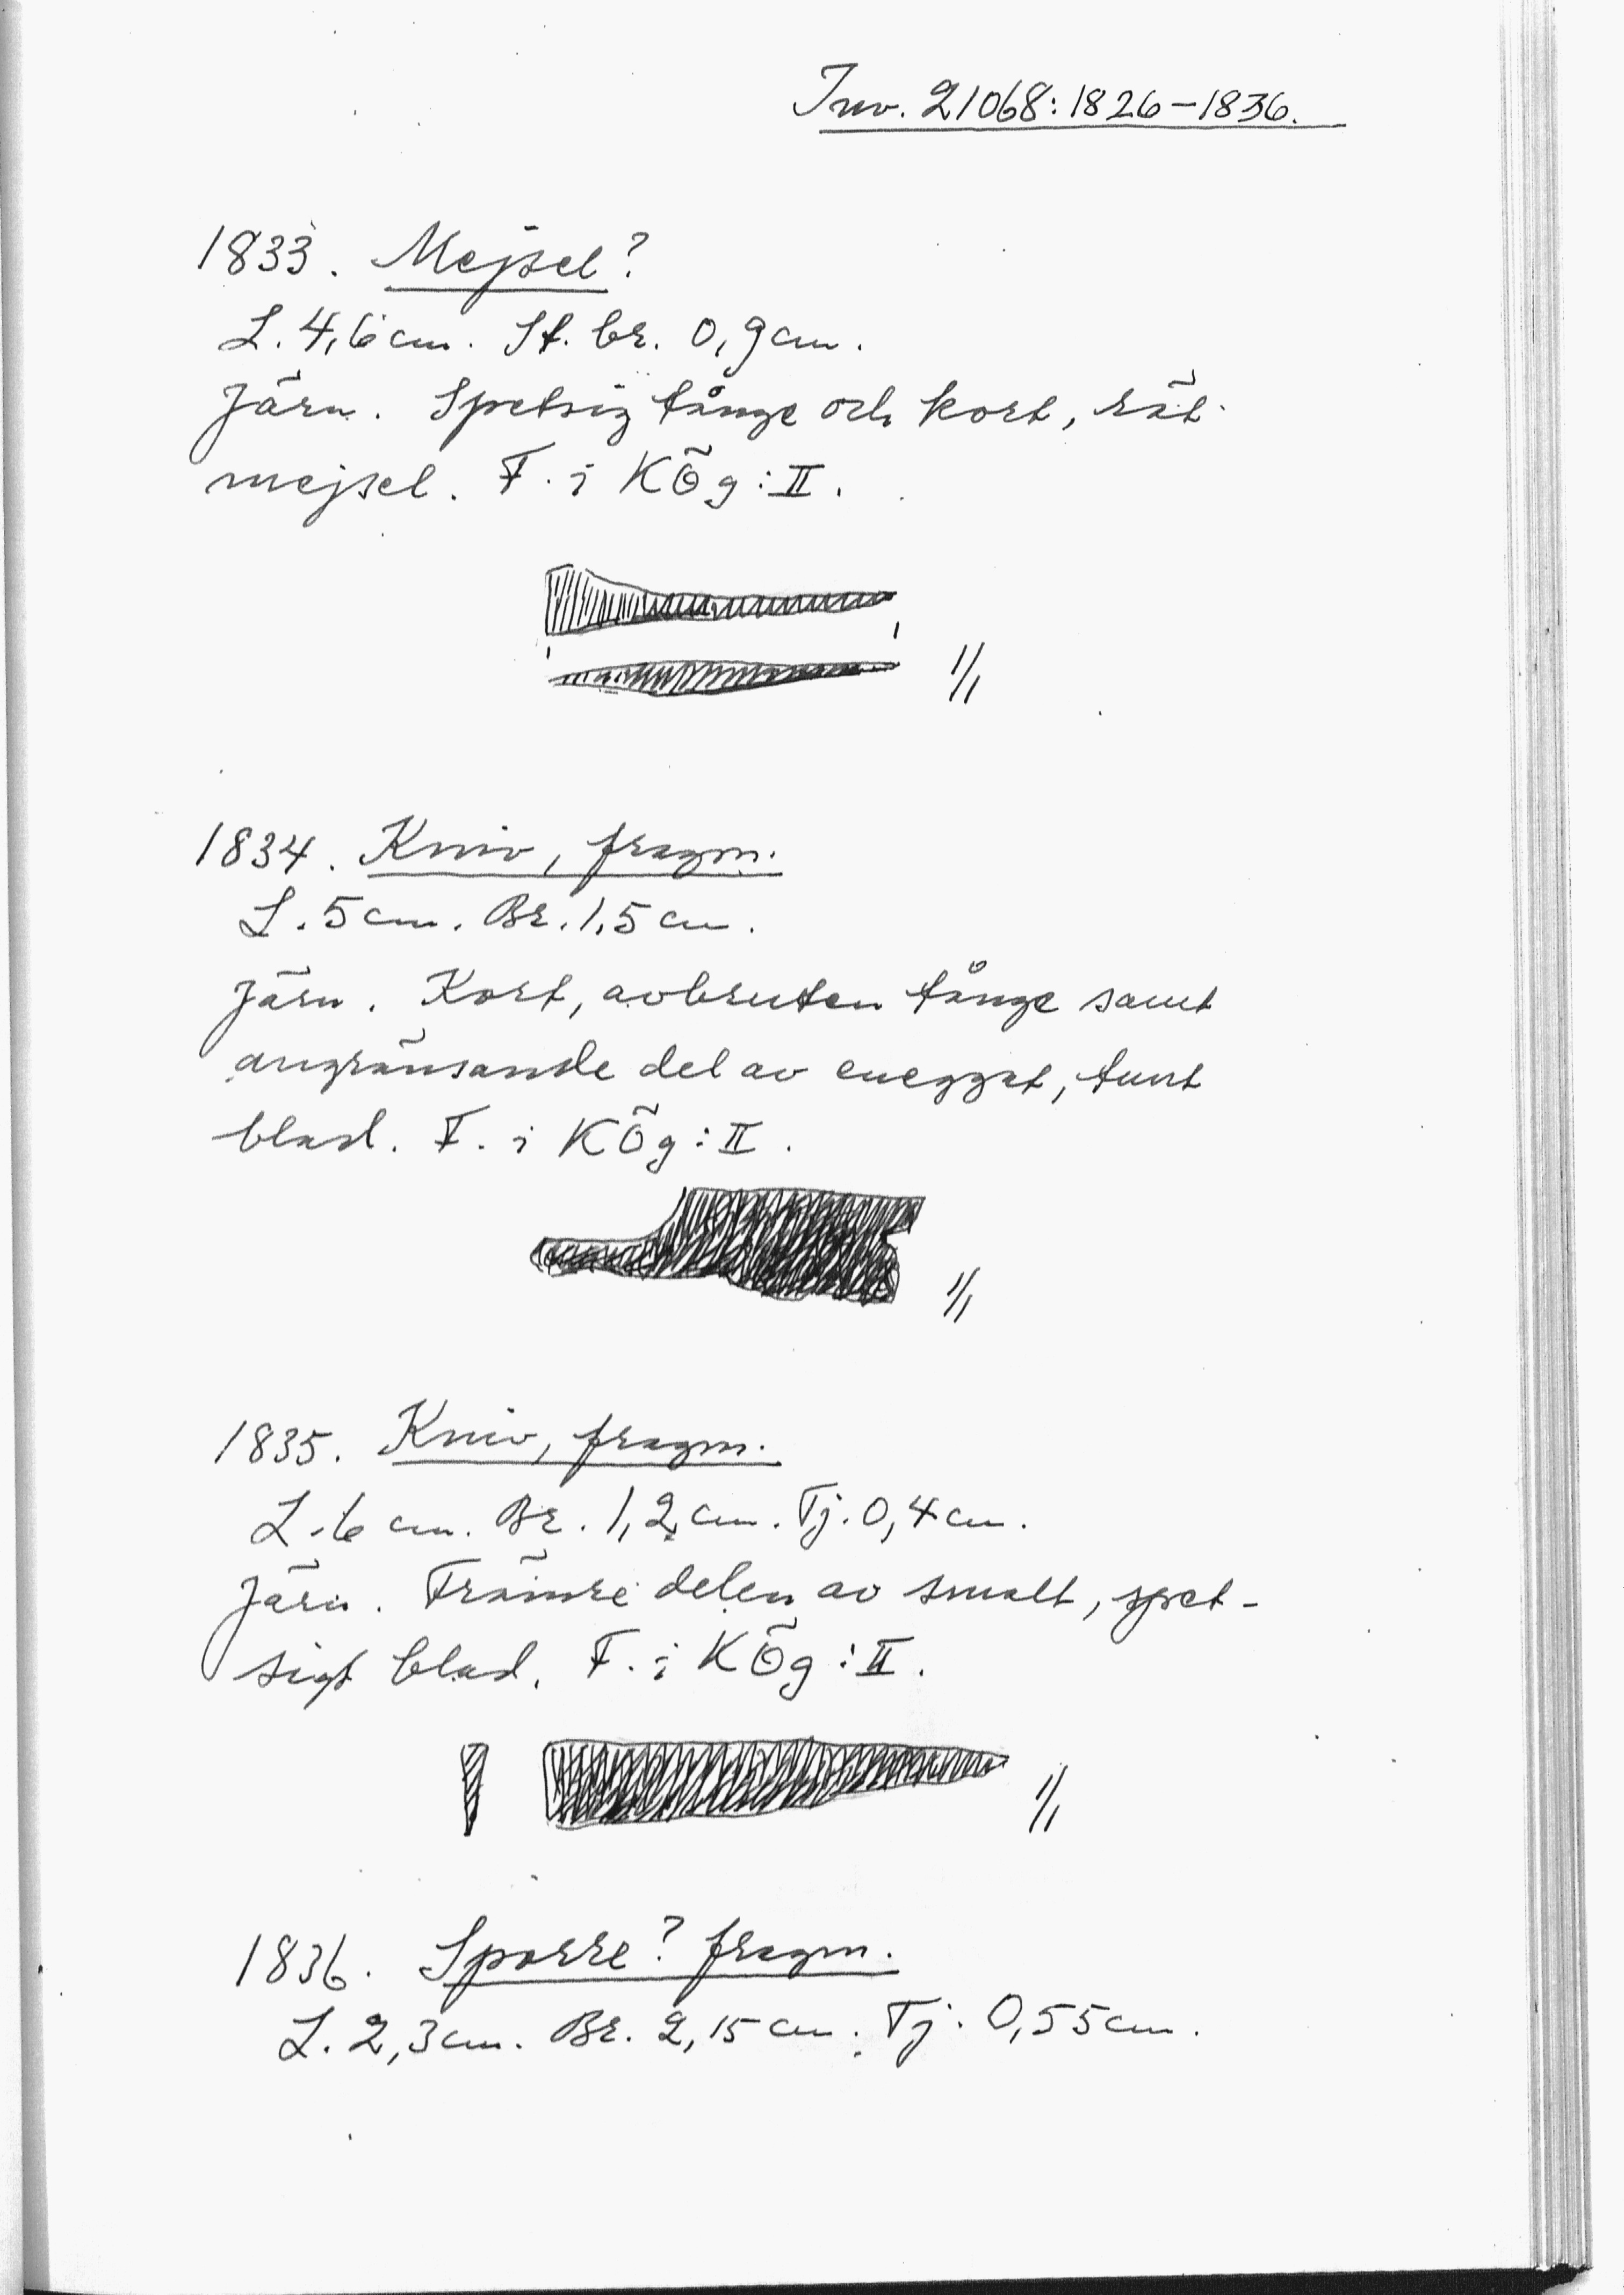 Inv. 21068:1826-1836.
1833. Mejsel?
L. 4,6 cm. St. br. 0,9 cm.
Järn. Spetsig tånge och kort, rät
mejsel. F. i KÖg:II.
1/1
1834. Kniv, fragm.
L. 5 cm. Br. 1,5 cm.
Järn. Kort, avbruten tånge samt
angränsande del av eneggat, tunt
blad. F. i KÖg:II.
1/1
1835. Kniv, fragm.
L. 6 cm. Br. 1,2 cm. Tj. 0,4 cm.
Järn. Främre delen av smalt, spet-
sigt blad. F. i KÖg:II.
1/1
1836. Sporre? fragm.
L. 2,3 cm. Br. 2,15 cm. Tj. 0,55 cm.